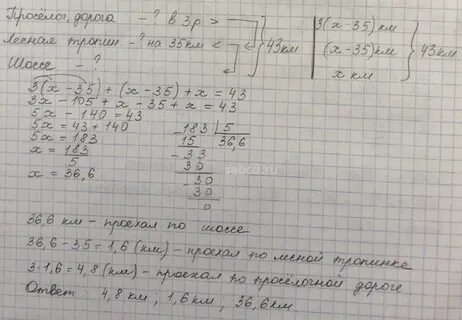 Просёлоч. дорога - ? в 3 р > 43 км 3(х-35) км
Лесная тропин. - ? на 35 км < (х-35) км 43 км
Шоссе - ? х км
3(х - 35) + (х - 35) + х = 43
3х - 105 + х - 35 + х = 43
5х - 140 = 43
5х = 43 + 140
5х = 183
х = 183/5
х = 36,6
183 5
15 36,6
33
30
30
30
0
sabcd.ru
36,6 км - проехал по шоссе
36,6 - 35 = 1,6 (км) - проехал по лесной тропинке
3·1,6 = 4,8 (км) - проехал по просёлочной дороге
Ответ: 4,8 км; 1,6 км; 36,6 км.